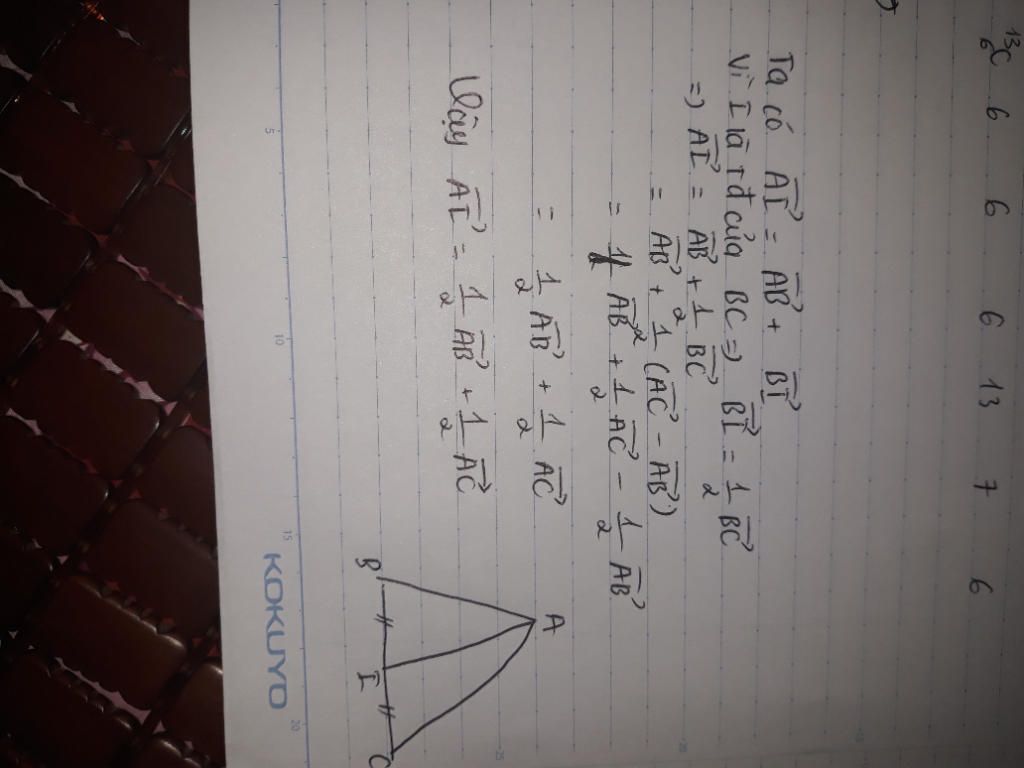 ¹³₆C 6 6 6 13 7 6
Ta có AI⃗ = AB⃗ + BI⃗
Vì I là tđ của BC => BI⃗ = 1/2 BC⃗
=) AI⃗ = AB⃗ + 1/2 BC⃗
= AB⃗ + 1/2 (AC⃗ - AB⃗)
= AB⃗ + 1/2 AC⃗ - 1/2 AB⃗
= 1/2 AB⃗ + 1/2 AC⃗
Vậy AI⃗ = 1/2 AB⃗ + 1/2 AC⃗
A
B I C
5 10 15 20
KOKUYO